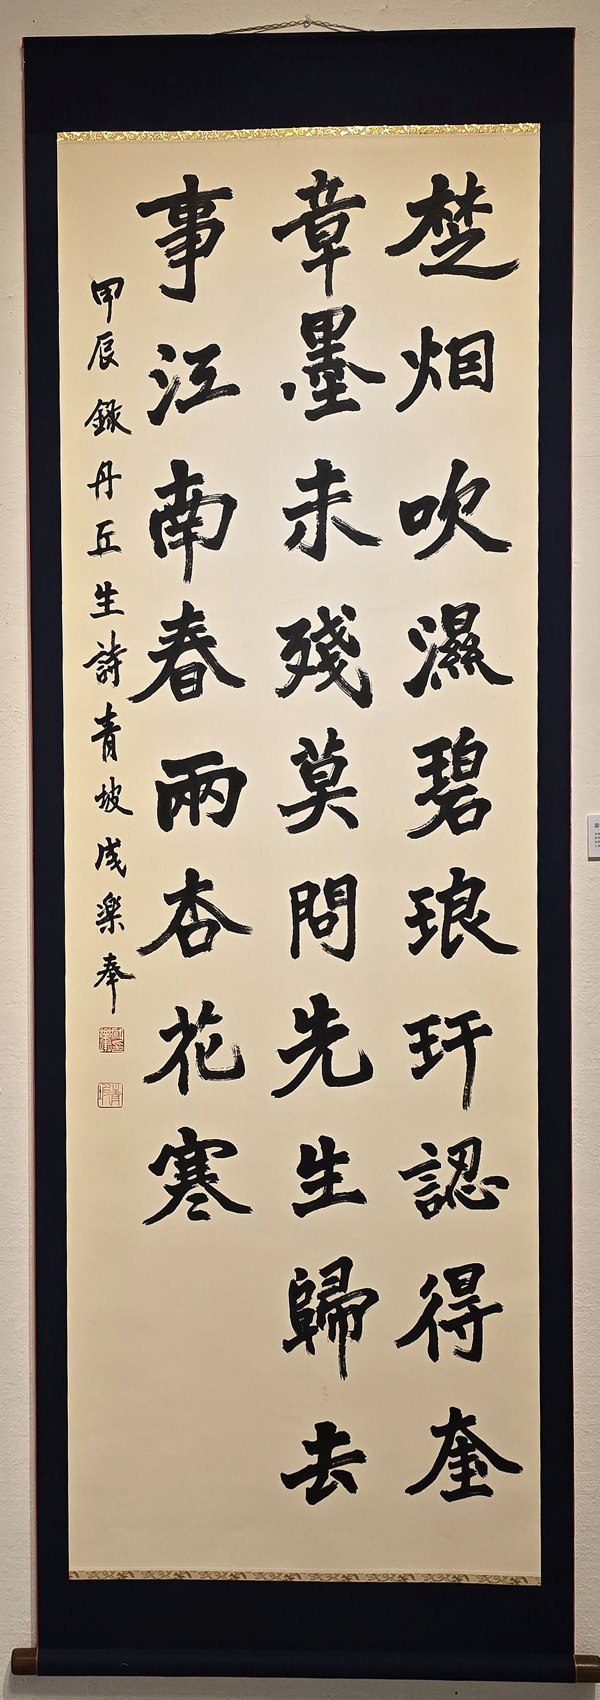 楚烟吹濕碧琅玕認得奎
章墨未殘莫問先生歸去
事江南春雨杏花寒
甲辰錄丹丘生詩青坡成樂奉